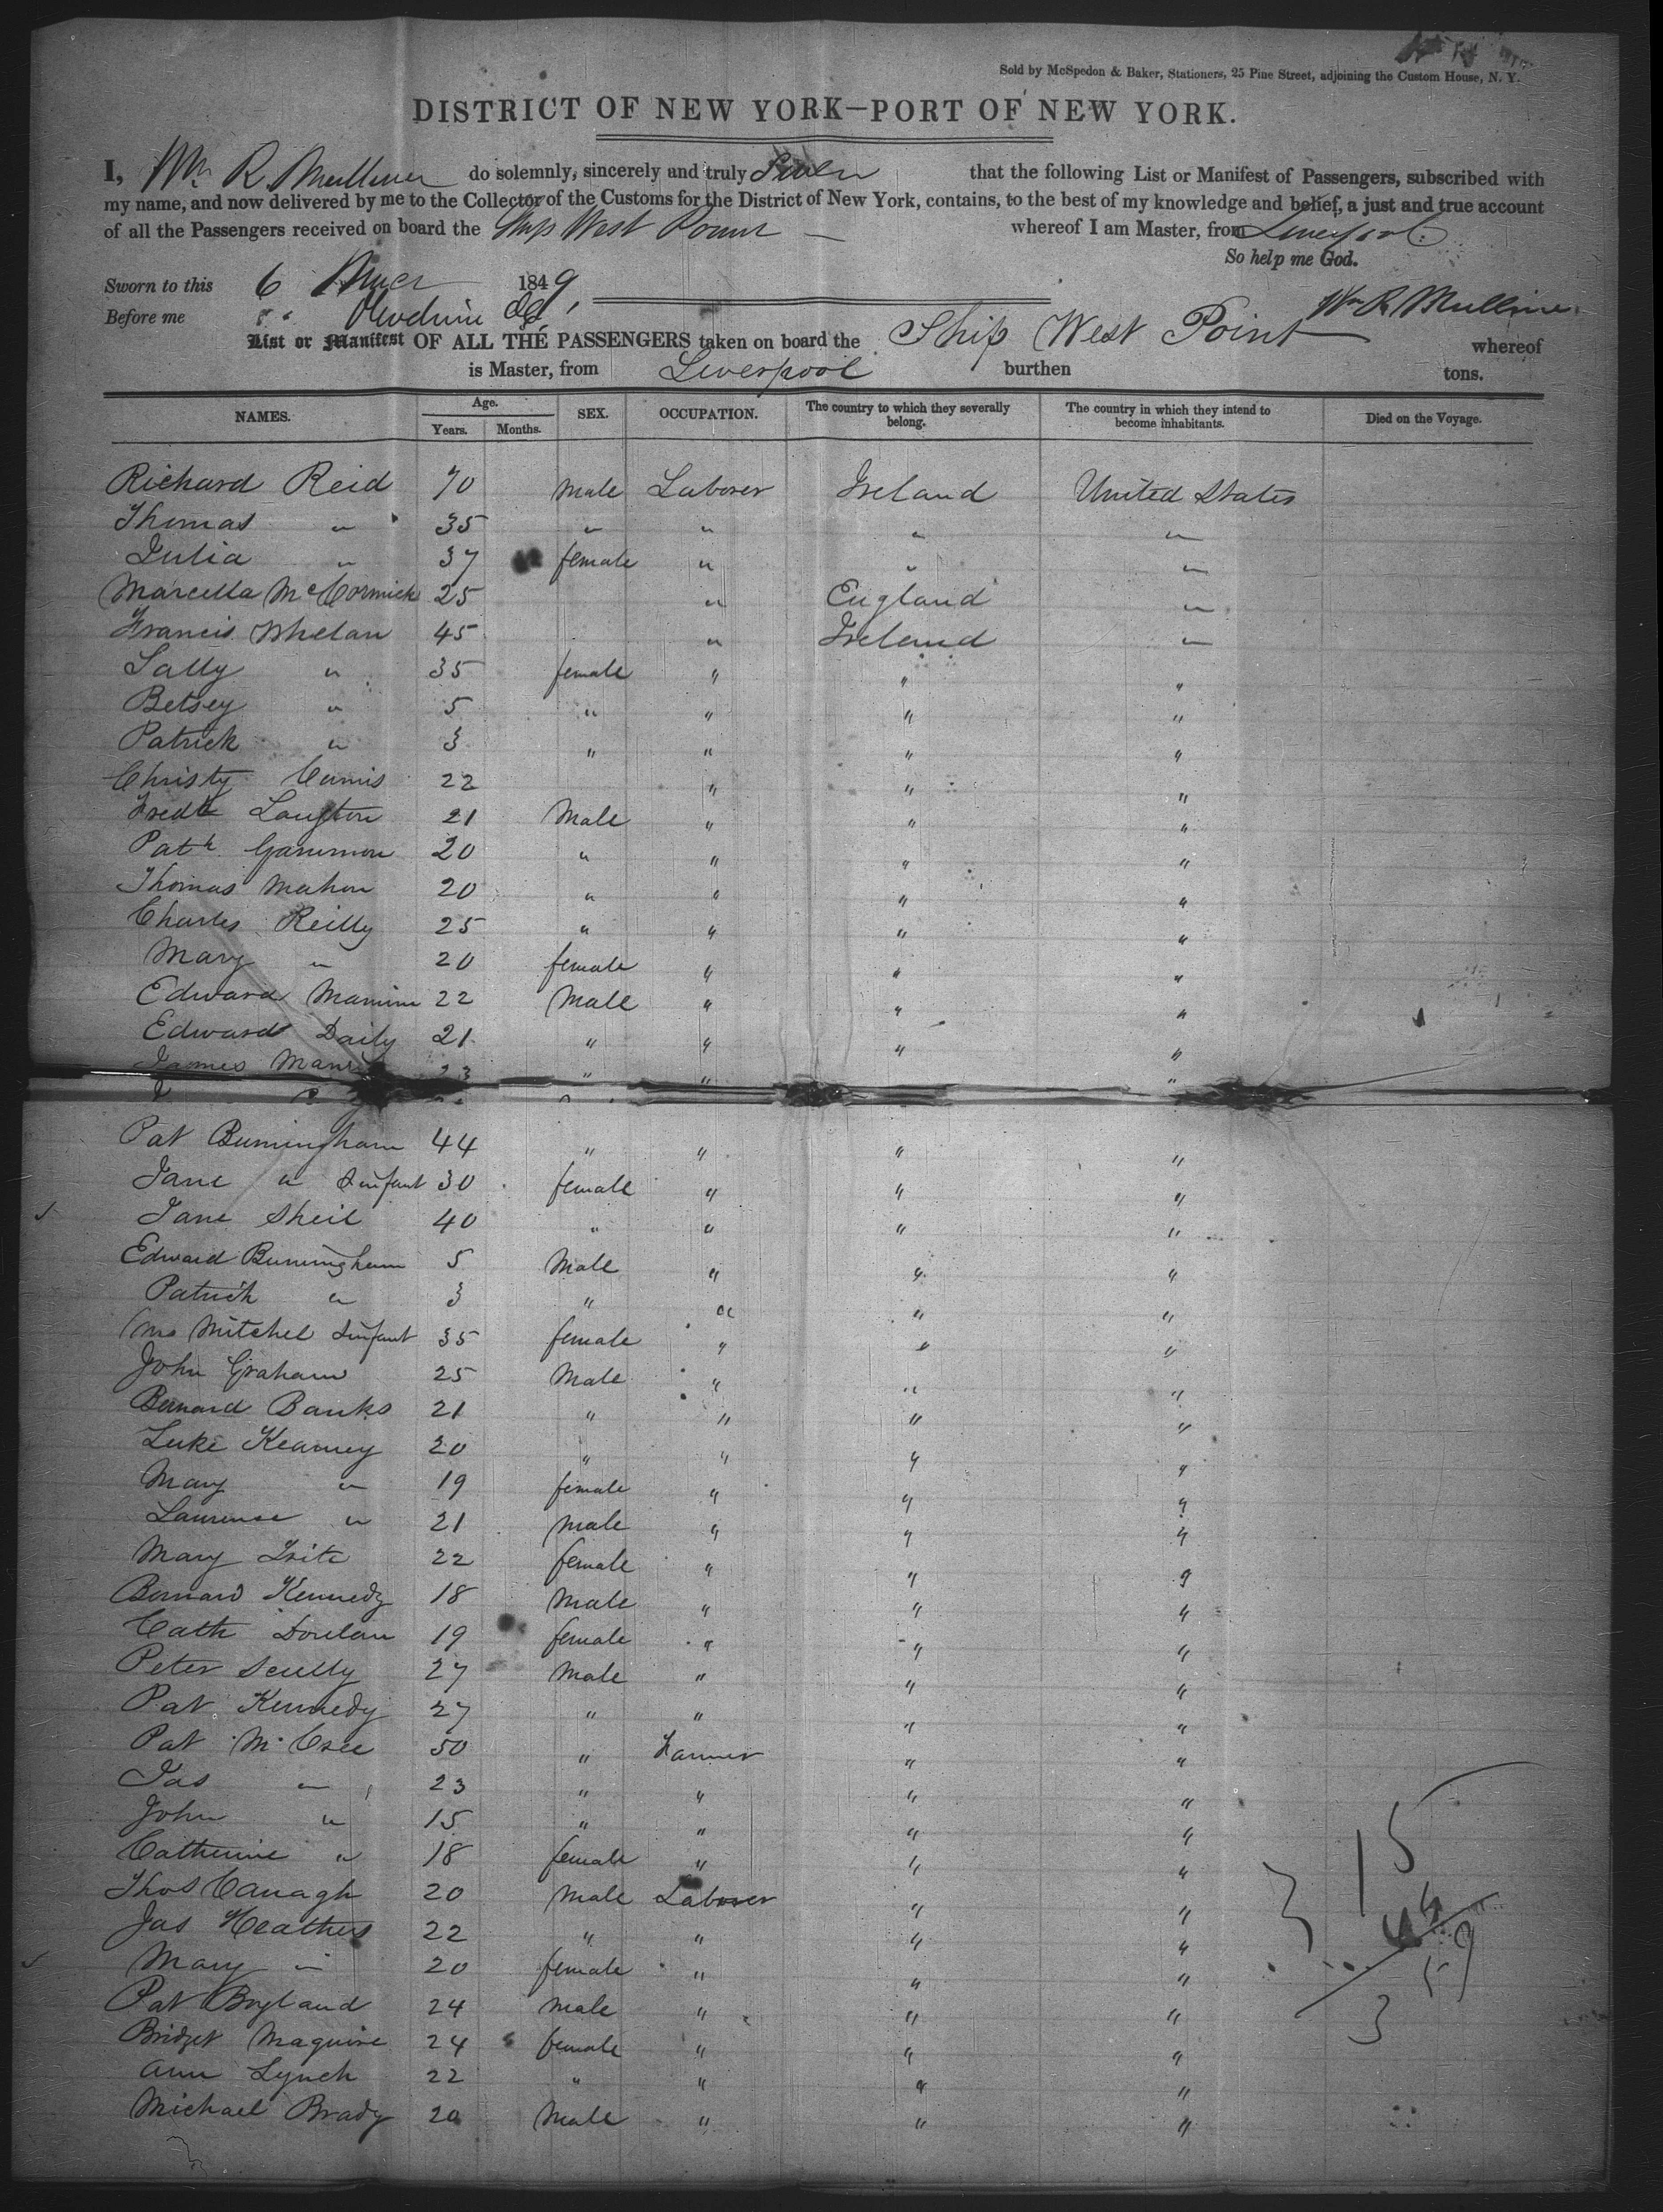 Sold by McSpedon & Baker, Stationers, 25 Pine Street, adjoining the Custom House, N. Y.
DISTRICT OF NEW YORK—PORT OF NEW YORK.
I, Wm R. Mulliner do solemnly, sincerely and truly Swear that the following List or Manifest of Passengers, subscribed with
my name, and now delivered by me to the Collector of the Customs for the District of New York, contains, to the best of my knowledge and belief, a just and true account
of all the Passengers received on board the Ship West Point — whereof I am Master, from Liverpool.
So help me God.
Sworn to this 6 1849,
Before me Wm R Mulliner
List or Manifest OF ALL THE PASSENGERS taken on board the Ship West Point whereof
is Master, from Liverpool burthen tons.
NAMES. Age. Years. Months. SEX. OCCUPATION. The country to which they severally belong. The country in which they intend to become inhabitants. Died on the Voyage.
Richard Reid 70 male Laborer Ireland United States
Thomas " 35 " " " "
Julia " 37 female " " "
Marcella McCormick 25 " England "
Francis Whelan 45 " Ireland "
Sally " 35 female " " "
Betsey " 5 " " " "
Patrick " 3 " " " "
Christy 22 " " "
Fredk Langton 21 Male " " "
Patk Gammon 20 " " " "
Thomas Mahon 20 " " " "
Charles Reilly 25 " " " "
Mary " 20 female " " "
Edward 22 Male " " "
Edward Daily 21 " " " "
James 23 " " "
Pat Burmingham 44 " " " "
Jane " Infant 30 female " " "
Jane Sheil 40 " " " "
Edward Burmingham 5 Male " " "
Patrick " 3 " " " "
Mrs Mitchel Infant 35 female " " "
John Graham 25 Male " " "
Bernard Banks 21 " " " "
Luke Kearney 20 " " " "
Mary " 19 female " " "
Laurence " 21 male " " "
Mary 22 female " " "
Bernard Kennedy 18 Male " " "
Cath Donlan 19 female " " "
Peter Scully 27 Male " " "
Pat Kennedy 27 " " " "
Pat McCree 50 " Farmer " "
Jas " 23 " " " "
John " 15 " " " "
Catherine " 18 female " " "
Thos Canagh 20 Male Laborer " "
Jas Heathers 22 " " " "
Mary " 20 female " " "
Pat Boyland 24 Male " " "
Bridget Maguire 24 female " " "
Ann Lynch 22 " " " "
Michael Brady 20 Male " " "